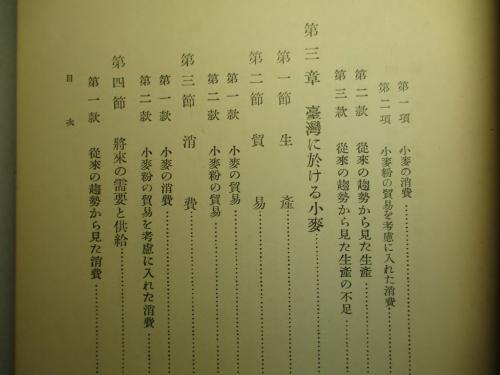 第一項 小麥の消費
第二項 小麥粉の貿易を考慮に入れた消費
第二款 從來の趨勢から見た生產
第三款 從來の趨勢から見た生產の不足
第三章 臺灣に於ける小麥
第一節 生產
第二節 貿易
第一款 小麥の貿易
第二款 小麥粉の貿易
第三節 消費
第一款 小麥の消費
第二款 小麥粉の貿易を考慮に入れた消費
第四節 將來の需要と供給
第一款 從來の趨勢から見た消費
目次